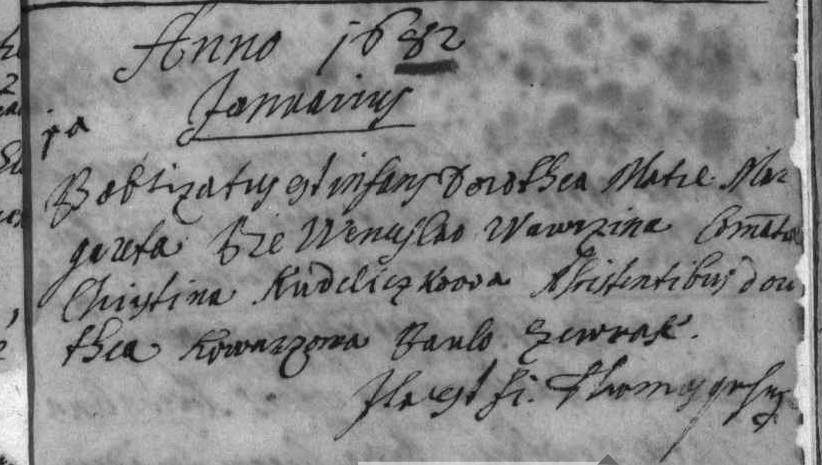 Anno 1682
Januarius
1a
Babtizatus est infans Dorothea Matre Mar
gareta Pre Wenceslao Wawrzina Com̃atre
Christina Kudeliczkowa Assistentibus Doro
thea Kowarzowa Paulo
Ita est fr. Thomas